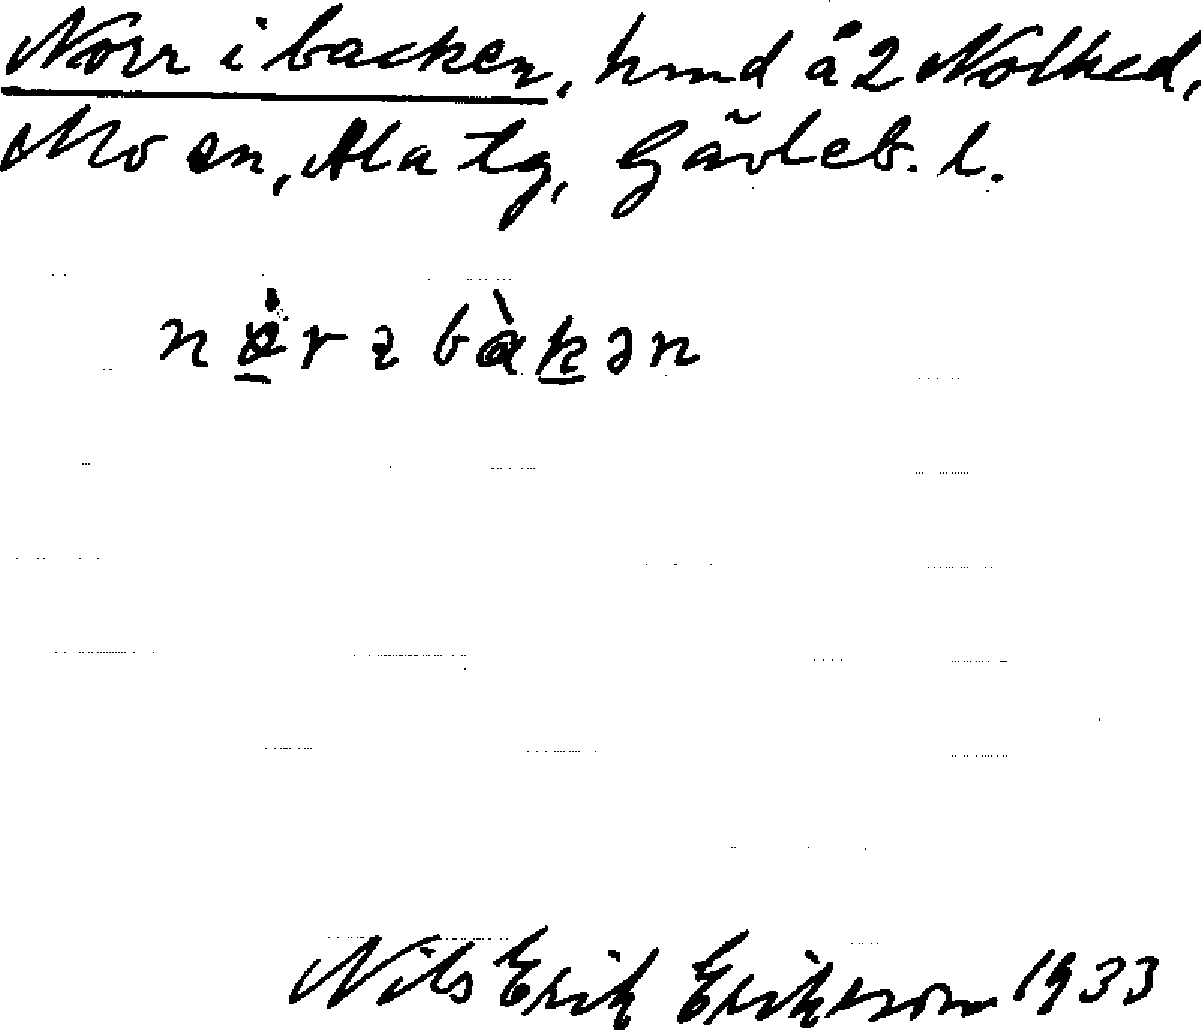 Norr i backen, hmd å 2 Nolhed,
Mo sn, Ala tg, Gävleb. l.
Nils Erik Eriksson 1933